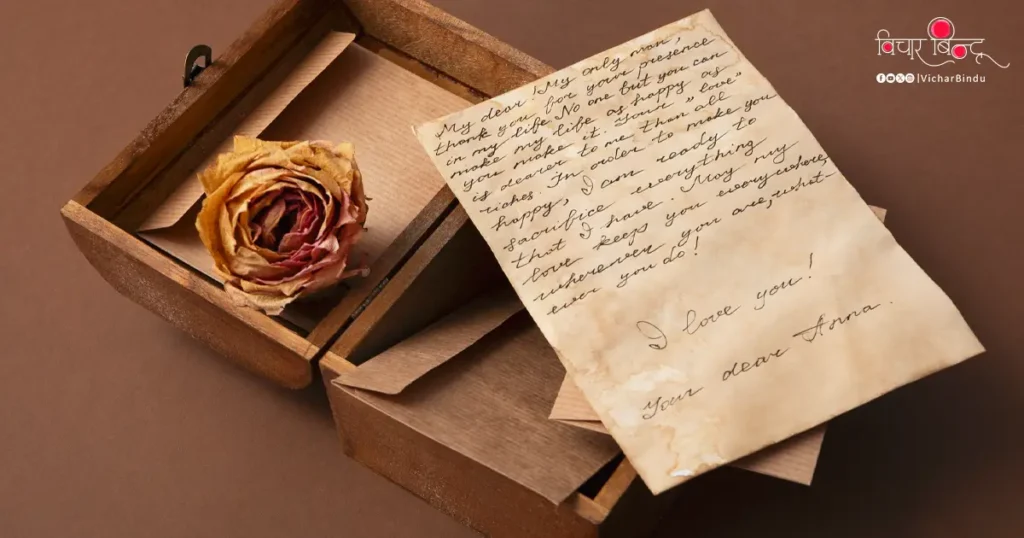 विचार बिन्दु
|VicharBindu
My dear! My only man,
thank you for your presence
in my life. No one but you can
make my life as happy as
you make it. Your "love"
is dearer to me than all
riches. In order to make you
happy, I am ready to
sacrifice everything
that I have. May my
love keeps you everywhere,
wherever you are, what-
ever you do!
I love you!
Your dear Anna.